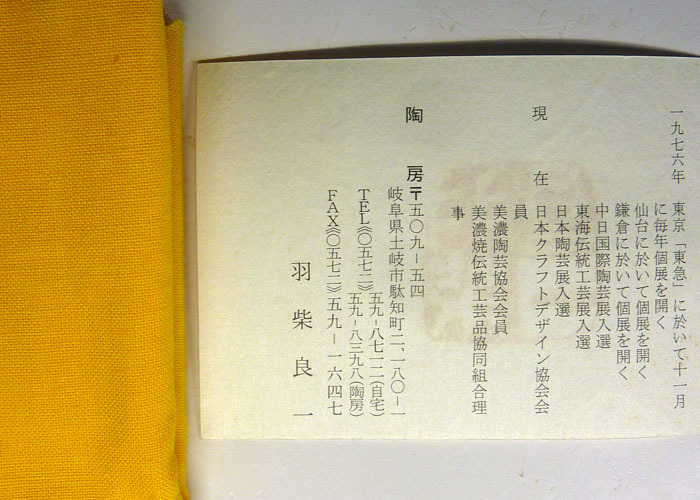 一九七六年 東京「東急」に於いて十一月
に毎年個展を開く
仙台に於いて個展を開く
鎌倉に於いて個展を開く
中日国際陶芸展入選
東海伝統工芸展入選
日本陶芸展入選
現在 日本クラフトデザイン協会会
員
美濃陶芸協会会員
美濃焼伝統工芸品協同組合理
事
陶房 〒五〇九－五四
岐阜県土岐市駄知町二、一八〇－一
TEL《〇五七二》五九－八七一二(自宅)
五九－八三九八(陶房)
FAX《〇五七二》五九－一六四七
羽柴良一